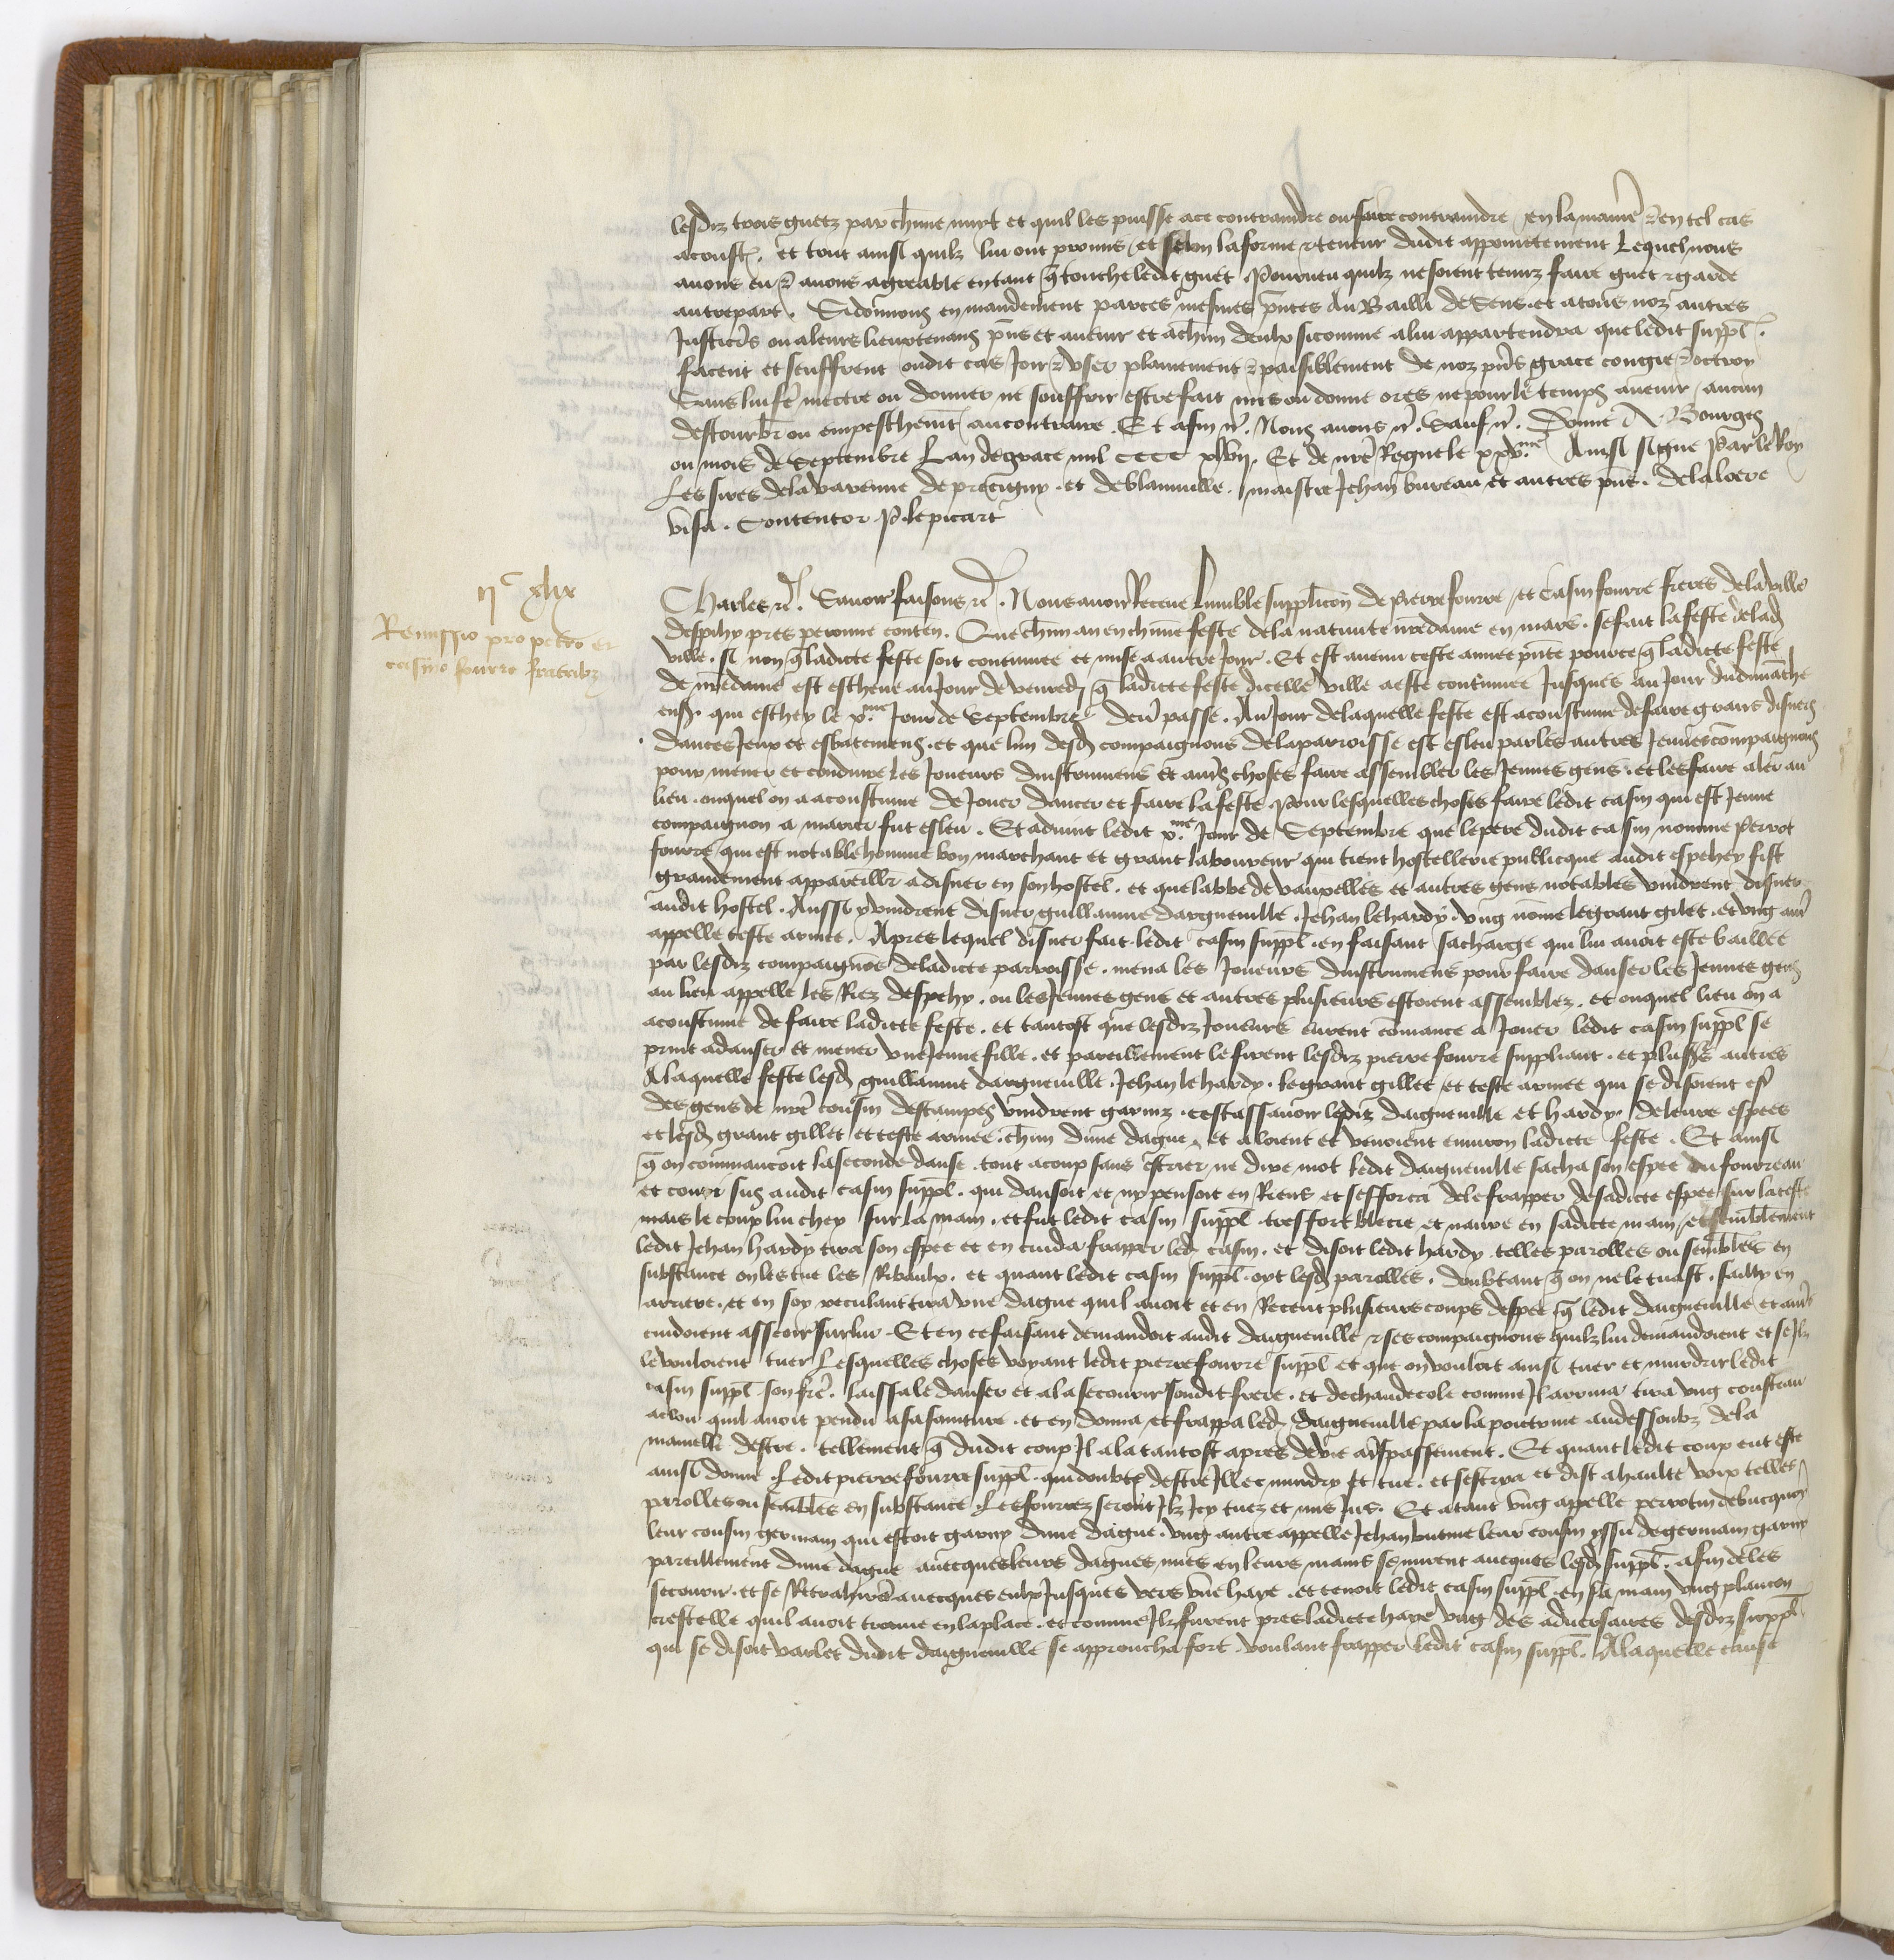 lesdiz trois guetz par chūne nuyt et quil les puisse a ce contraindre ou faire contraindre en la maniē et en tel cas
acoust. et tout ainsi quilz lui ont promis et selon la forme et teneur dudit appoinctement Lequel nous
avons eu et avons agreable entant q̄ touche ledit guet Pourveu quilz ne soient tenuz faire guet et garde
autrepart. Si donnons en mandement par ces mesmes p̄ntes Au Bailli de Sens et a tous noz autres
Justiciēs ou a leurs lieuxtenans p̄ns et avenir et a ch̄un deulx si comme a lui appartendra que ledit suppl.
facent et seuffrent oudit cas Joir et user plainement et paisiblement de noz p̄ns grace congie et octroy
Sans lui fē mectre ou donner ne souffrir estre fait mis ou donne ores ne pour le temps avenir aucun
destourb̄r ou empeschem̄t au contraire. Et afin ēc. Nous avons ēc. Sauf ēc. Donne A Bourges
ou mois de Septembre Lan de grace mil CCCC xlvij. Et de nr̄e Regne le xxv.me Ainsi signe Par le Roy
Les sires de la varenne de precigny et de blainville. maistre Jehan bureau et autres p̄ns. Delaloere
visa. Contentor P. le picart
ijc xlix
Remissio pro petro et
casino fourre fratribz
Charles ēc. Savoir faisons ēc. Nous avoir Receue Lumble supplicōn de Pierre fourre et Casin fourre freres de la ville
despehy pres peronne conten. Que ch̄un an en ch̄une feste de la nativite nr̄edame en mars. se fait la feste de lad
ville. si non q̄ ladicte feste soit continuee et mise a autre Jour. Et est avenu ceste annee p̄nte pource q̄ ladicte feste
de nr̄edame est escheue au Jour de vendredj q̄ ladicte feste dicelle ville a este continuee Jusques au Jour du dimāche
ens. qui eschey le x.me Jour de Septembre dern̄ passe. Au Jour de laquelle feste est acoustume de faire grans disners
dances Jeux et esbatemens. et que lun desd compaignons de la parroisse est esleu par les autres Jeunes compaignons
pour mener et conduire les Joueurs dinstrumens et autr̄s choses faire assembler les Jeunes gens. et les faire aler au
lieu. ouquel on a acoustume de Jouer dancer et faire la feste. Pour lesquelles choses faire ledit casin qui est Jeune
compaignon a marier fut esleu. Et advint ledit x.me Jour de Septembre que le pere dudit casin nomme Perrot
fourre qui est notable homme bon marchant et grant laboureur qui tient hostellerie publicque audit espehey fist
grandement appareillr a disner en son hostel. et que labbe de vauxelles et autres gens notables vindrent disner
audit hostel. Aussi y vindrent disner guillaume dargueville. Jehan lehardy. ung nōme legrant gilet. et ung aut̄r
appelle teste armee. Apres lequel disner fait ledit casin suppl. en faisant sa charge qui lui avoit este baillee
par lesdiz compaignōs de ladicte parroisse. mena les Joueurs dinstrumens pour faire danser les Jeunes gens
au lieu appelle les Riez despehy. ou les Jeunes gens et autres plusieurs estoient assemblez. et ouquel lieu on a
acoustume de faire ladicte feste. et tantost que lesdiz Joueurs eurent cōmance a Jouer ledit casin suppl se
print a danser et mener une Jeune fille. et pareillement le firent lesdiz pierre fourre suppliant. et plus̄rs autres
A laquelle feste lesd guillaume dargueville. Jehan lehardy. legrant gillet et teste armee qui se disoient es̄t
des gens de nr̄e cousin destampes vindrent garniz. cest assavoir lesdiz daigueville et hardy. de leurs espees
et lesd grant gillet et teste armee. ch̄un dune dague et aloient et venoient environ ladicte feste. Et ainsi
q̄ on commancoit la seconde danse. tout a coup sans estrier ne dire mot ledit daigueville sacha son espee du fourreau
et couru sus audit casin suppl. qui dansoit et ny pensoit en Riens et sefforca de le frapper de sadicte espee sur la teste
mais le coup lui chey sur la main. et fut ledit casin suppl. tresfort blecie et navre en sadicte main et semblement
ledit Jehan hardy tira son espee et en cuida frapper led casin. et disoit ledit hardy telles parolles ou semblēs en
substance on les tue les Ribaulx. et quant ledit casin suppl. oyt lesd parolles. doubtant q̄ on ne le tuast. sailly en
arriere. et en soy reculant tira une dague quil avoit et en Receut plusieurs coups despee q̄ ledit daigueville et autr̄s
cuidoient asseoir sur lui. Et en ce faisant demandoit audit daigueville et ses compaignons quilz lui demandoient et se Jlz
le vouloient tuer Lesquelles choses voyant ledit pierre fourre suppl et que on vouloit ainsi tuer et murdrir ledit
casin suppl son frē. laissa le danser et ala secourir sondit frere. et de chaudecole comme Jl arriva tira ung cousteau
quil avoit pendu a sa sainture. et en donna et frappa led daigueville par la poictrine au dessoubz de la
mamelle destre. tellement q̄ dudit coup Jl ala tantost apres de vie a tr̄spassement. Et quant ledit coup eut este
ainsi donne. Ledit pierre fourre suppl. qui doubtā destre Jllec murdry et tue. et sescria et dist a haulte voix telles
parolles ou semblēs en substance Les fourrez seront Jlz Jcy tuez et mis Jus. Et atant ung appelle perrotin debucquoy
leur cousin germain qui estoit garny dune dague. ung autre appelle Jehan leur cousin yssu de germain garny
pareillement dune dague avecques leurs dagues nues en leurs mains se mirent avecques lesd suppl. afin de les
secourir. et se Retrahirēt avecques eulx Jusques vers une haye. et tenoit ledit casin suppl. en sa main ung plancon
crestelle quil avoit trouve en la place. et comme Jlz furent pres ladicte haye ung des adversaires desdiz suppl.
qui se disoit varlet dudit daigueville se approucha fort voulant frapper ledit casin suppl. A laquelle cause